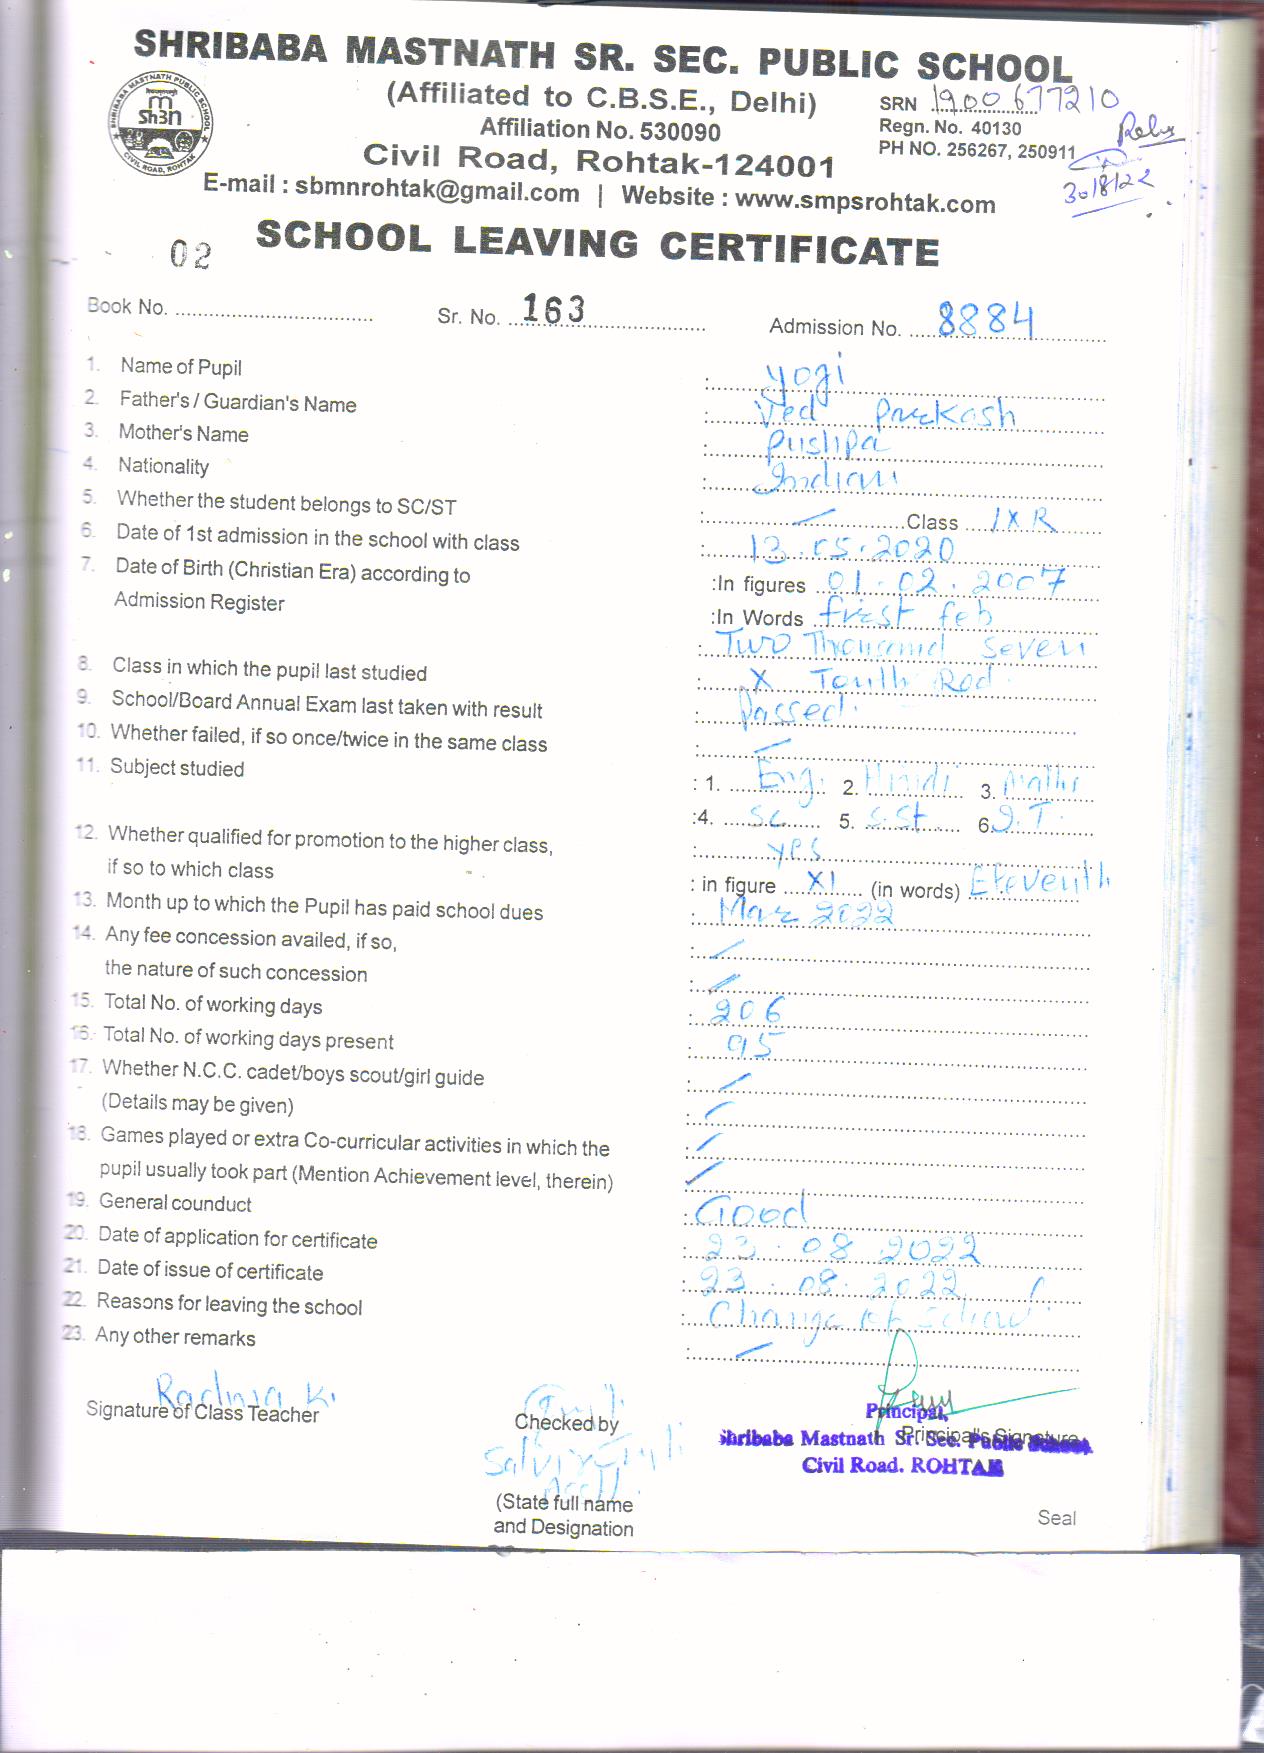 SHRIBABA MASTNATH SR. SEC. PUBLIC SCHOOL
SHRIBABA MASTNATH PUBLIC SCHOOL
Sh3n
CIVIL ROAD, ROHTAK
(Affiliated to C.B.S.E., Delhi)
SRN 1900677210
Affiliation No. 530090
Regn. No. 40130
Civil Road, Rohtak-124001
PH NO. 256267, 250911
30/8/22
E-mail : sbmnrohtak@gmail.com | Website : www.smpsrohtak.com
SCHOOL LEAVING CERTIFICATE
02
Book No. Sr. No. 163 Admission No. 8884
1. Name of Pupil : Yogi
2. Father's / Guardian's Name : Ved Parkash
3. Mother's Name : Pushpa
4. Nationality : Indian
5. Whether the student belongs to SC/ST : — Class IX R
6. Date of 1st admission in the school with class : 13.05.2020
7. Date of Birth (Christian Era) according to :In figures 01.02.2007
Admission Register :In Words first feb
: Two Thousand Seven
8. Class in which the pupil last studied : X Tenth Red
9. School/Board Annual Exam last taken with result : Passed
10. Whether failed, if so once/twice in the same class : —
11. Subject studied : 1. Eng. 2. Hindi 3. Maths
:4. Sc 5. S.St 6. I.T.
12. Whether qualified for promotion to the higher class, : yes
if so to which class : in figure XI (in words) Eleventh
13. Month up to which the Pupil has paid school dues : Mar 2022
14. Any fee concession availed, if so, : —
the nature of such concession : —
15. Total No. of working days : 206
16. Total No. of working days present : 95
17. Whether N.C.C. cadet/boys scout/girl guide : —
(Details may be given) : —
18. Games played or extra Co-curricular activities in which the : —
pupil usually took part (Mention Achievement level, therein) : —
19. General counduct : Good
20. Date of application for certificate : 23.08.2022
21. Date of issue of certificate : 23.08.2022
22. Reasons for leaving the school : Change of School
23. Any other remarks : —
Signature of Class Teacher
Checked by
Principal's Signature
Principal,
Shribaba Mastnath Sr. Sec. Public School,
Civil Road. ROHTAK
(State full name
and Designation
Seal